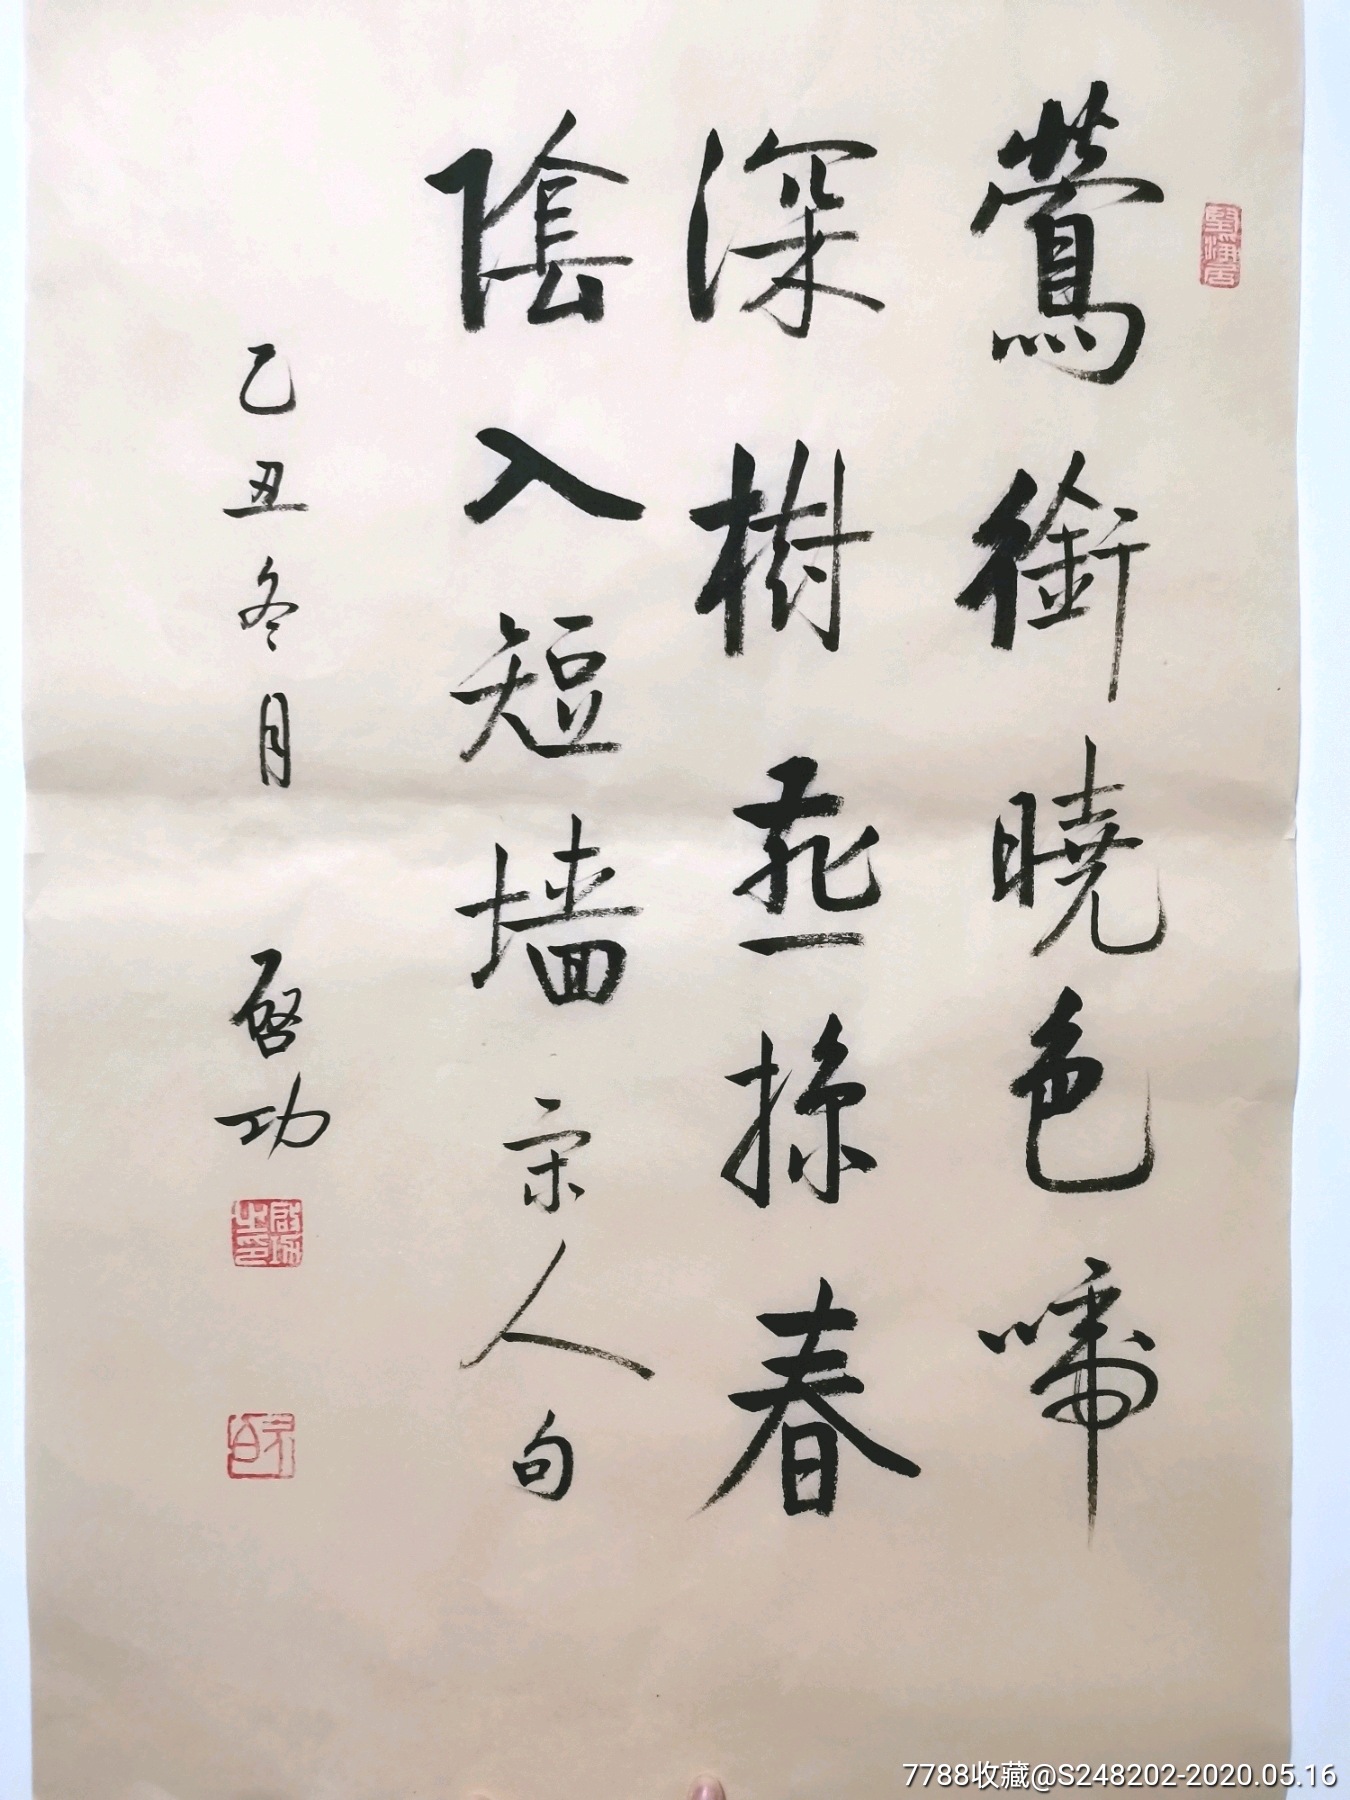 鶯銜曉色啼
深樹燕掠春
陰入短墙宋人句
乙丑冬月 啓功
7788收藏@S248202-2020.05.16